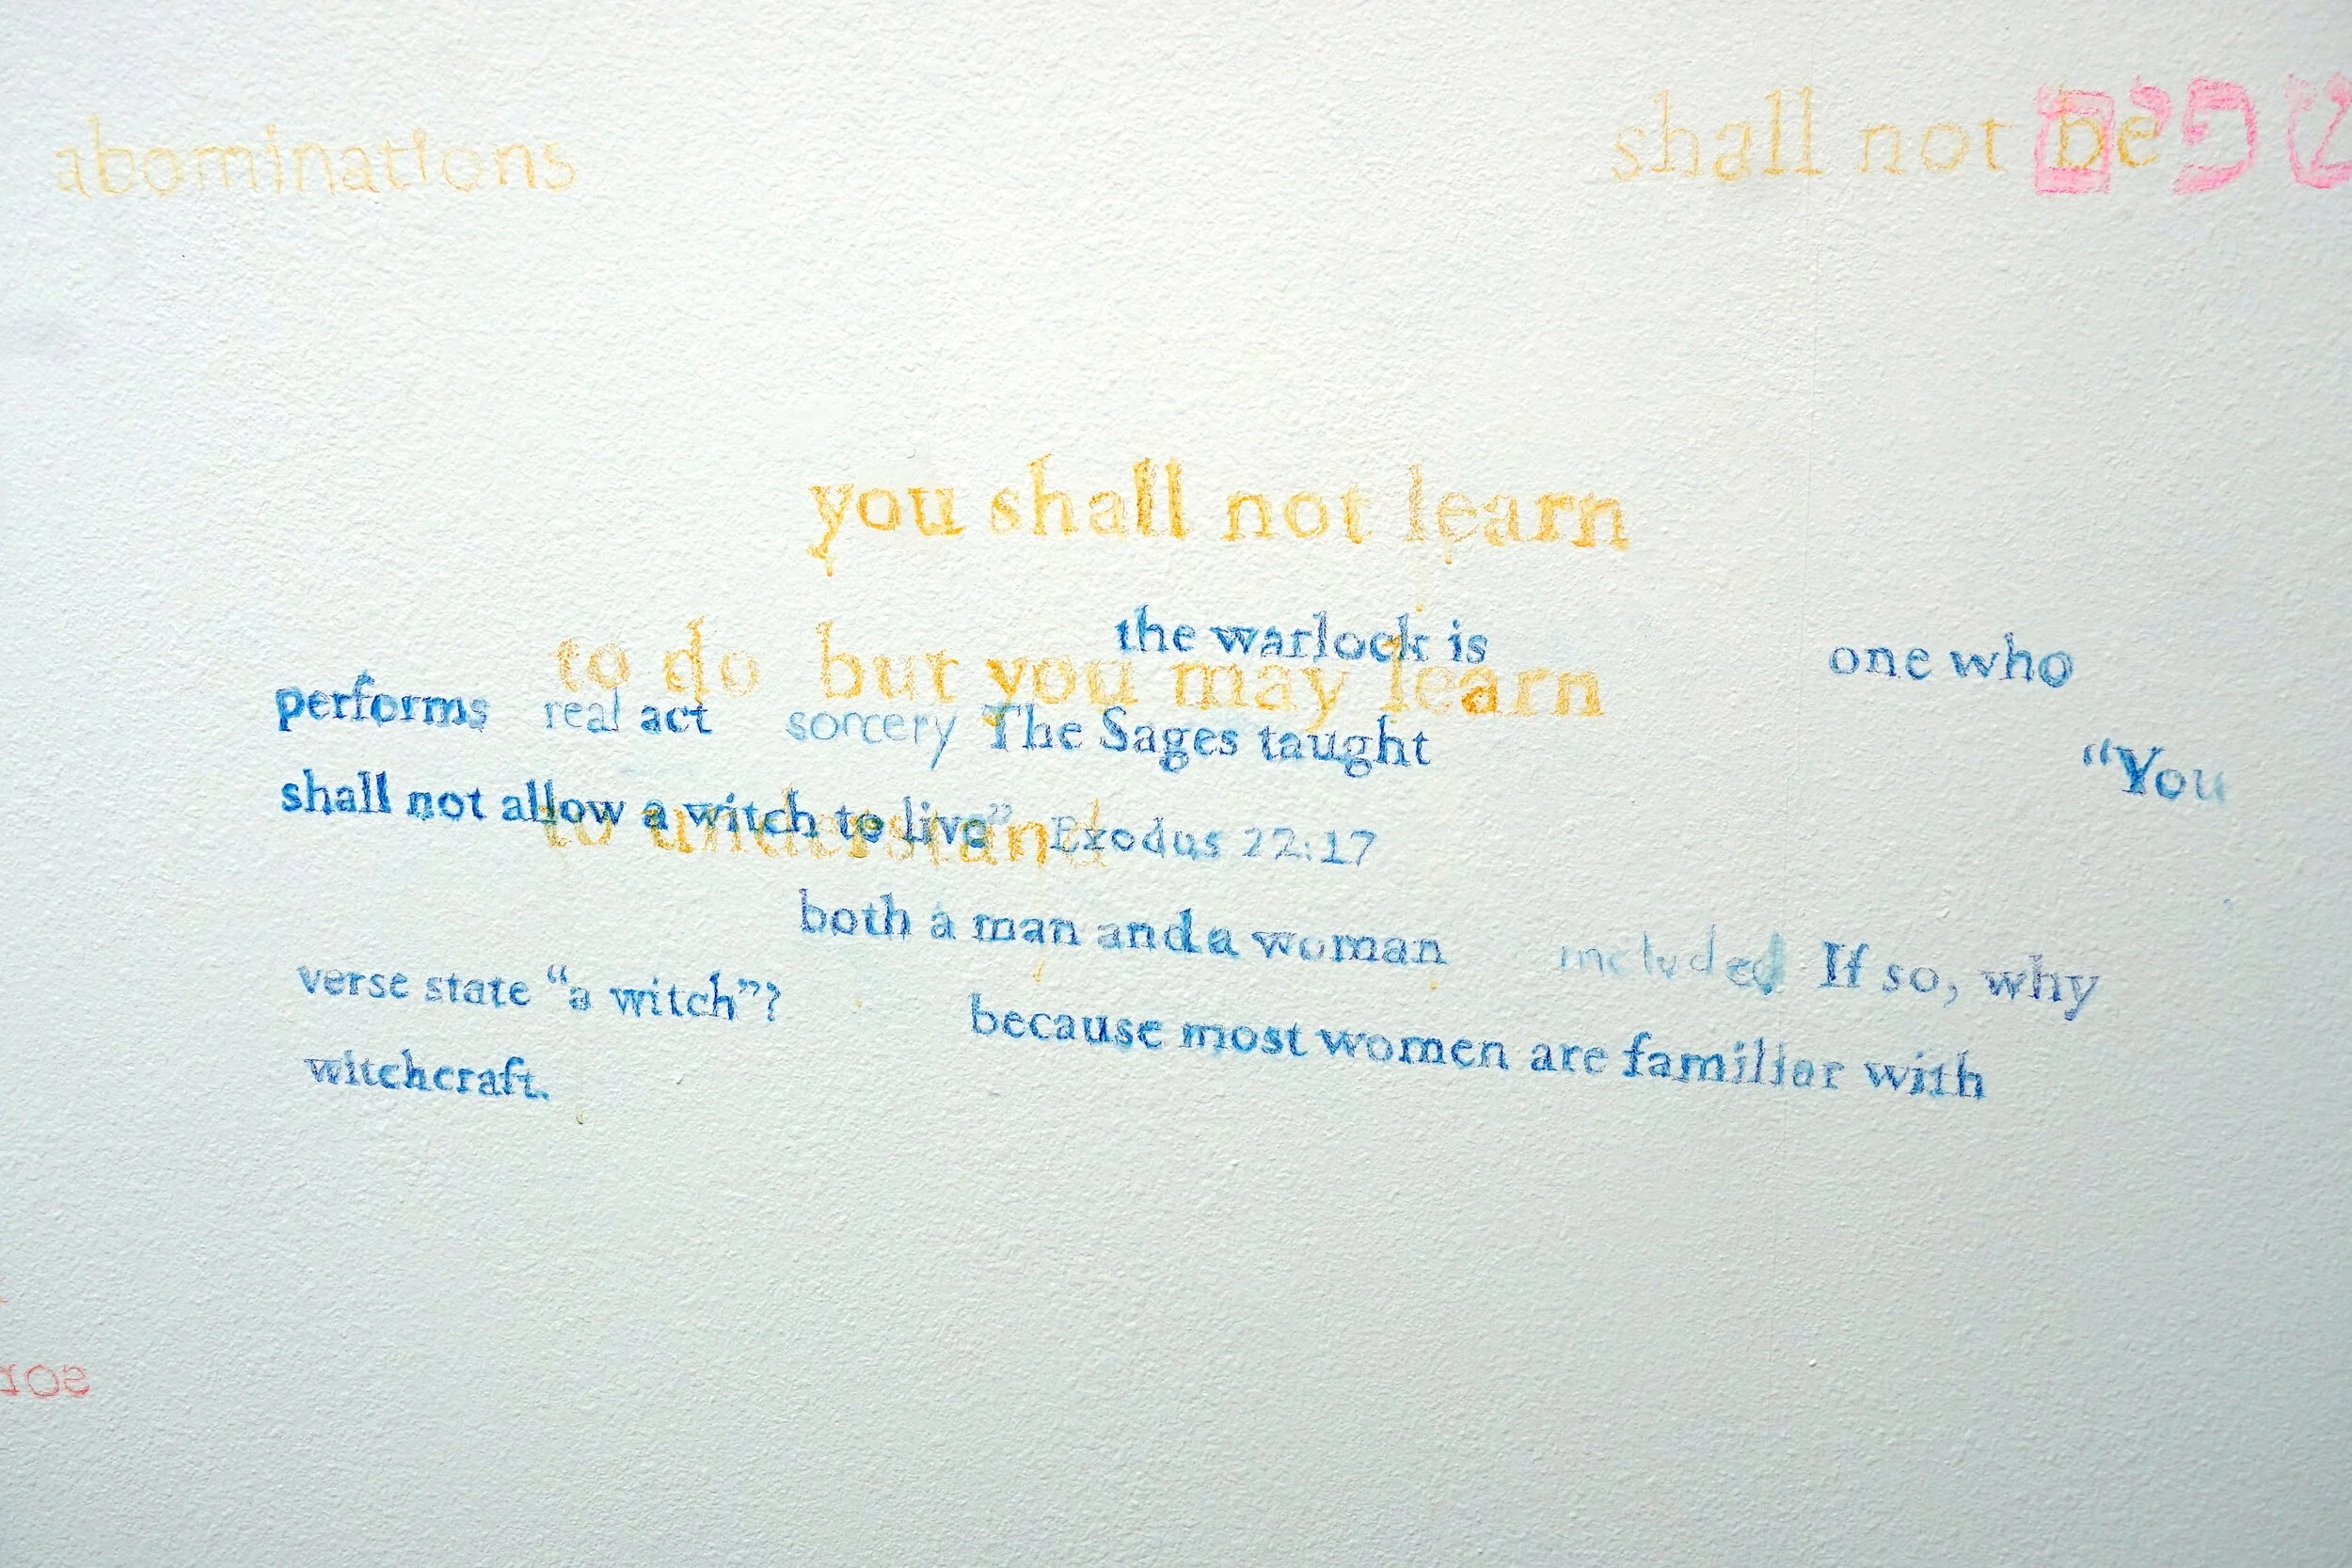 abominations
shall not be
שפים
you shall not learn
to do but you may learn
to understand
the warlock is one who
performs real act sorcery The Sages taught “You
shall not allow a witch to live” Exodus 22:17
both a man and a woman included If so, why
verse state “a witch”? because most women are familiar with
witchcraft.